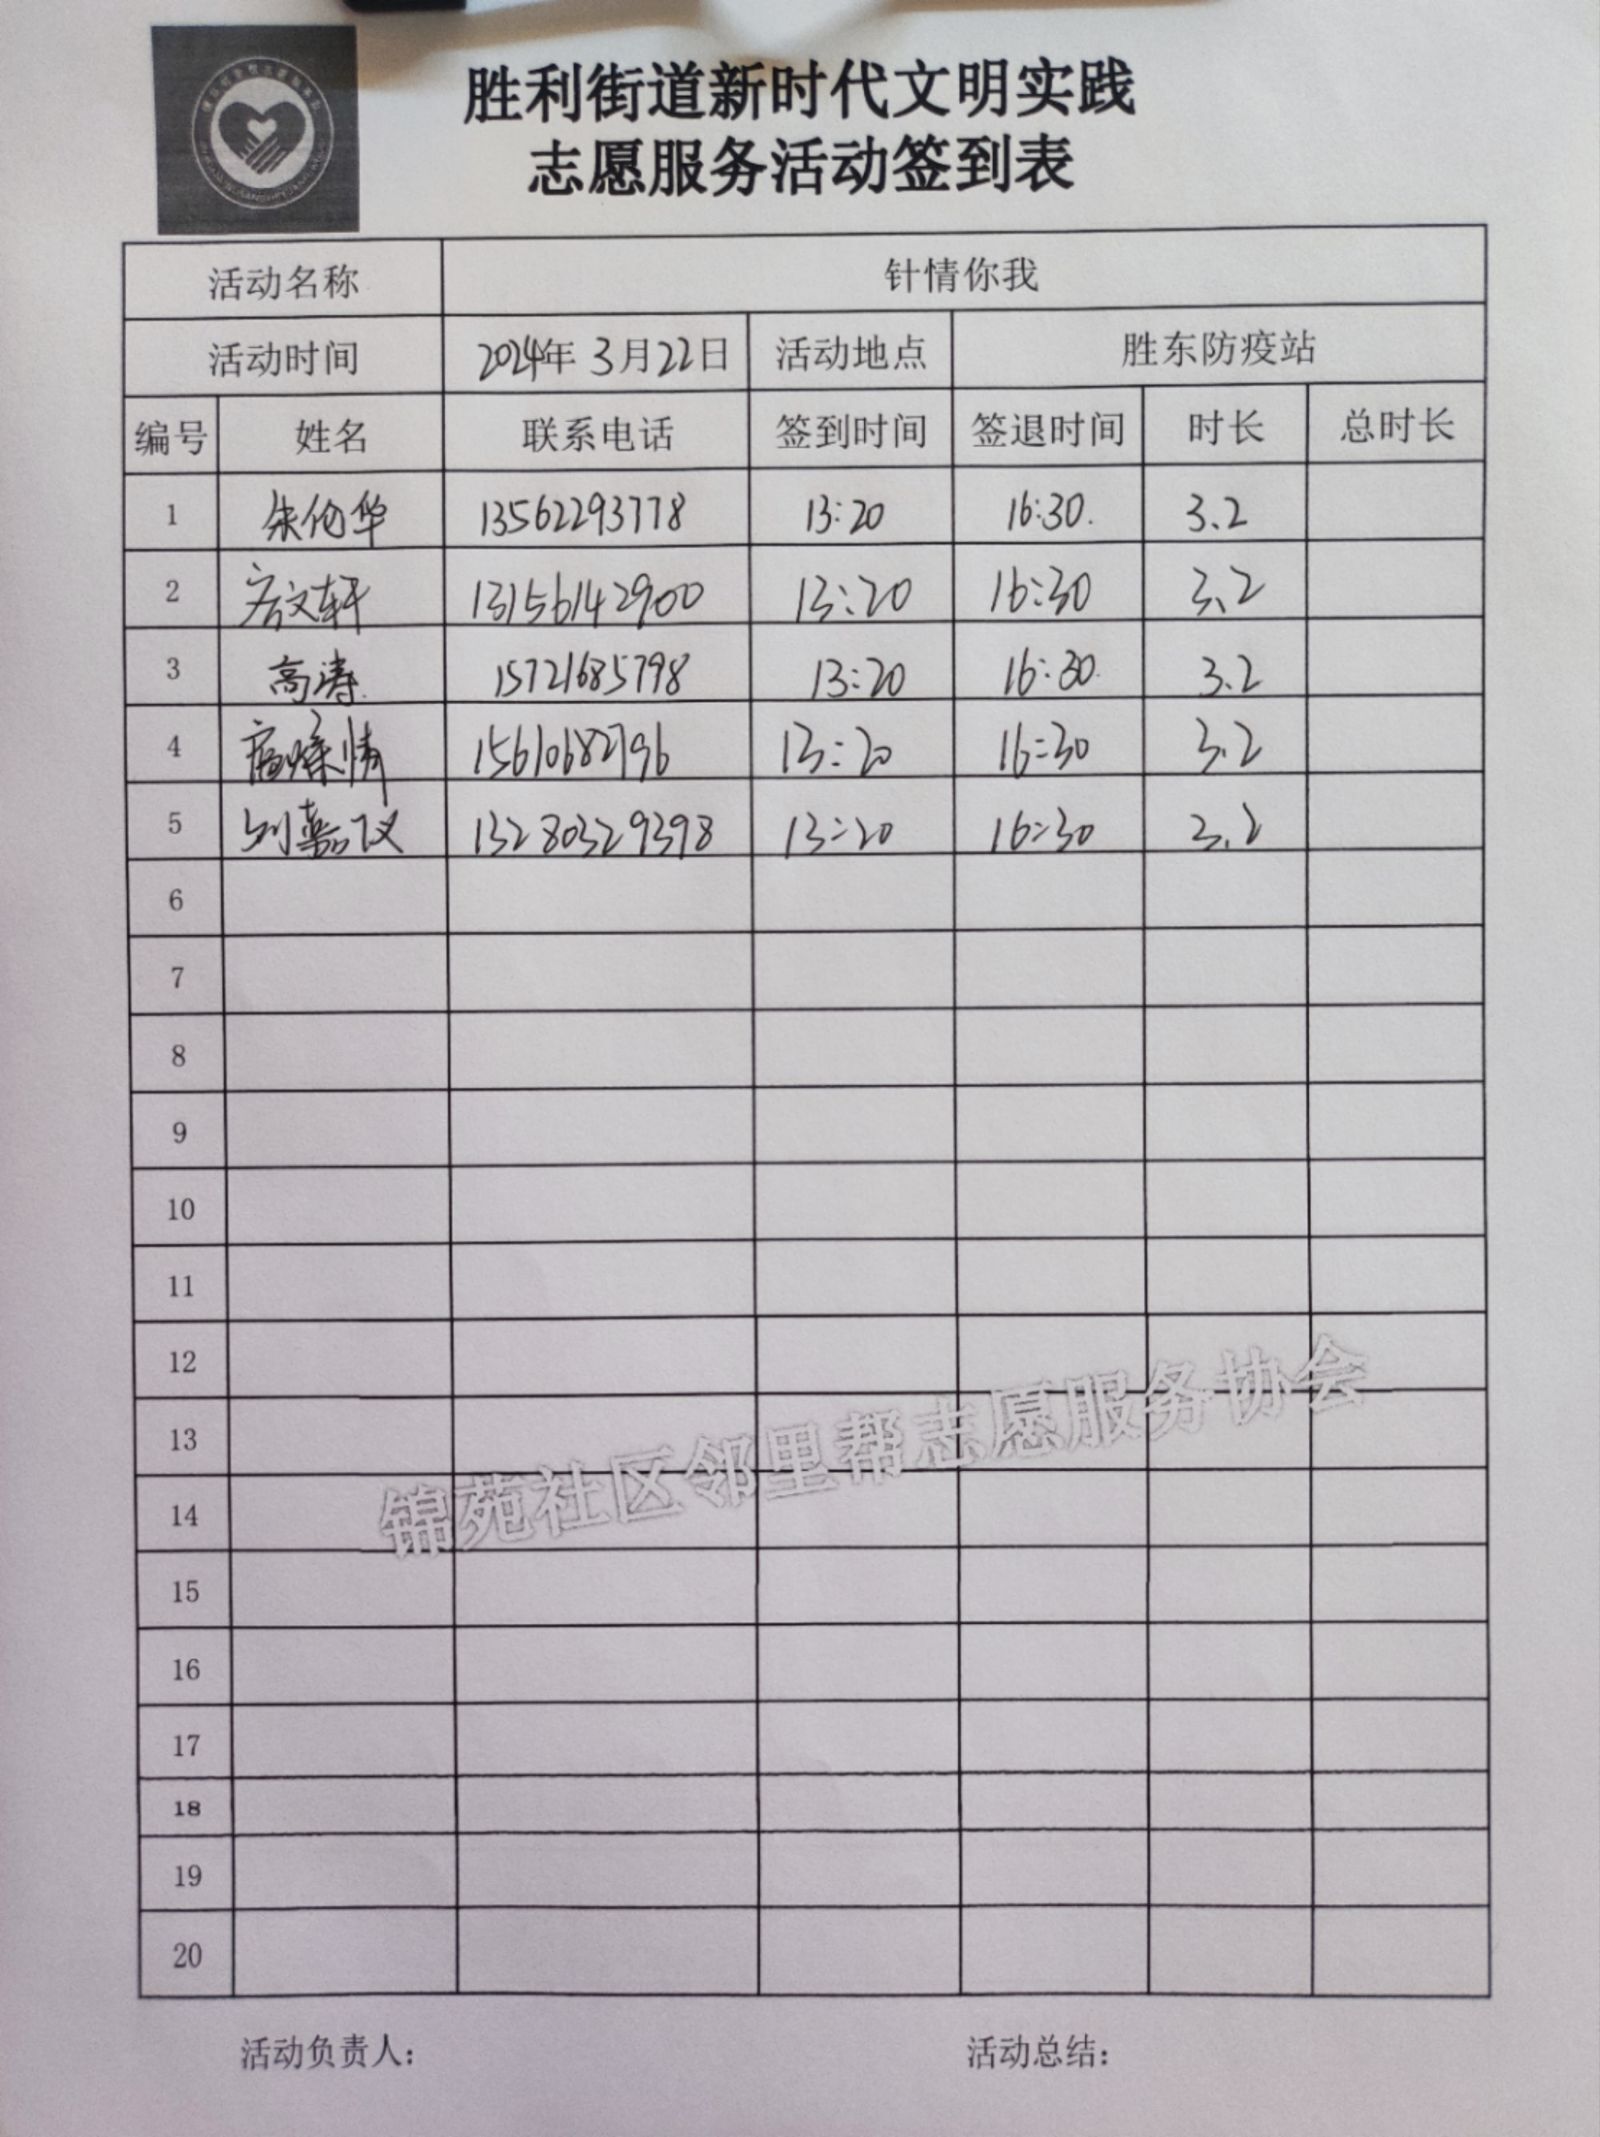 胜利街道新时代文明实践
志愿服务活动签到表
活动名称 针情你我
活动时间 2024年 3月22日 活动地点 胜东防疫站
编号 姓名 联系电话 签到时间 签退时间 时长 总时长
1 朱伦华 13562293778 13:20 16:30. 3.2
2 文轩 13156142900 13:20 16:30 3.2
3 高涛 15721685798 13:20 16:30. 3.2
4 15610682796 13:20 16:30 3.2
5 刘嘉仪 13280329398 13:20 16:30 3.2
6
7
8
9
10
11
12
13
14
15
16
17
18
19
20
锦苑社区邻里帮志愿服务协会
活动负责人: 活动总结: